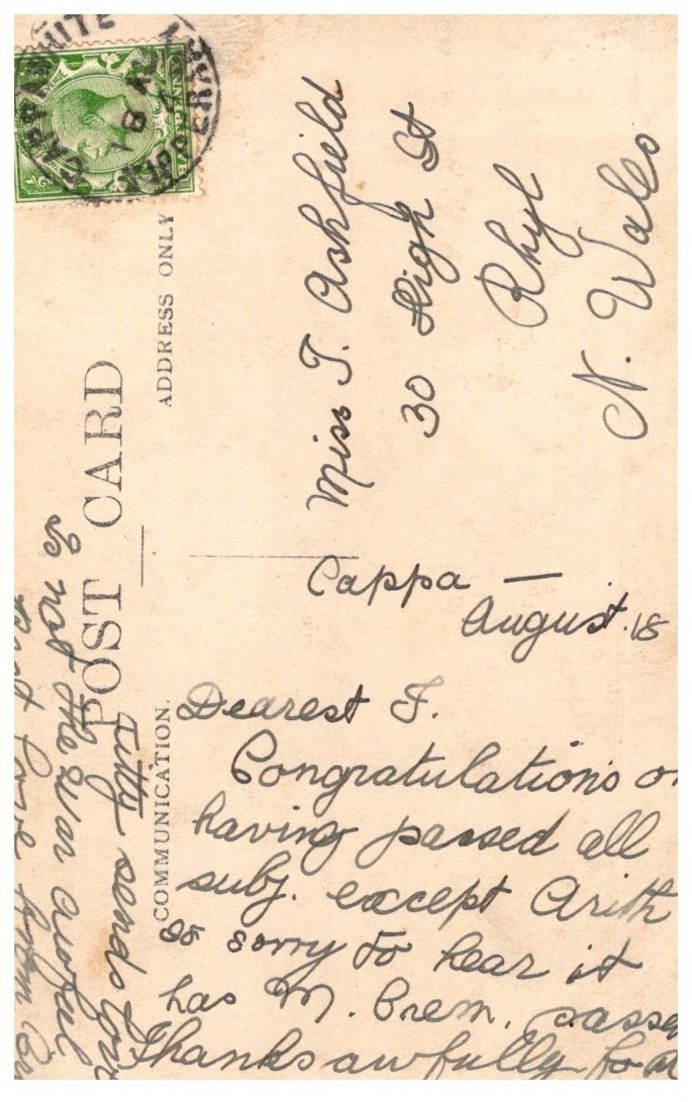 POST CARD
ADDRESS ONLY
COMMUNICATION.
Miss T. Ashfield
30 High St
Rhyl
N. Wales
Cappa —
August. 18
Dearest T.
Congratulations
having passed all
subj. except Arith
so sorry to hear it
has M. Crem.
Thanks awfully for
Titty sends love
Is not the war awful
Best love from